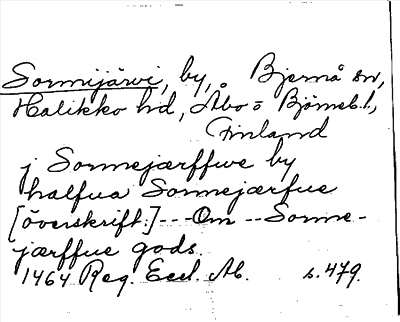 Sormijärvi, by, Bjernå sn,
Halikko hd, Åbo = Björneb. l.,
Finland
j Sormejærffwe by
halfua Sormejærfue
[överskrift:] --- Om -- Sorme-
jærffue gods.
1464 Reg. Eccl. Ab. s. 479.